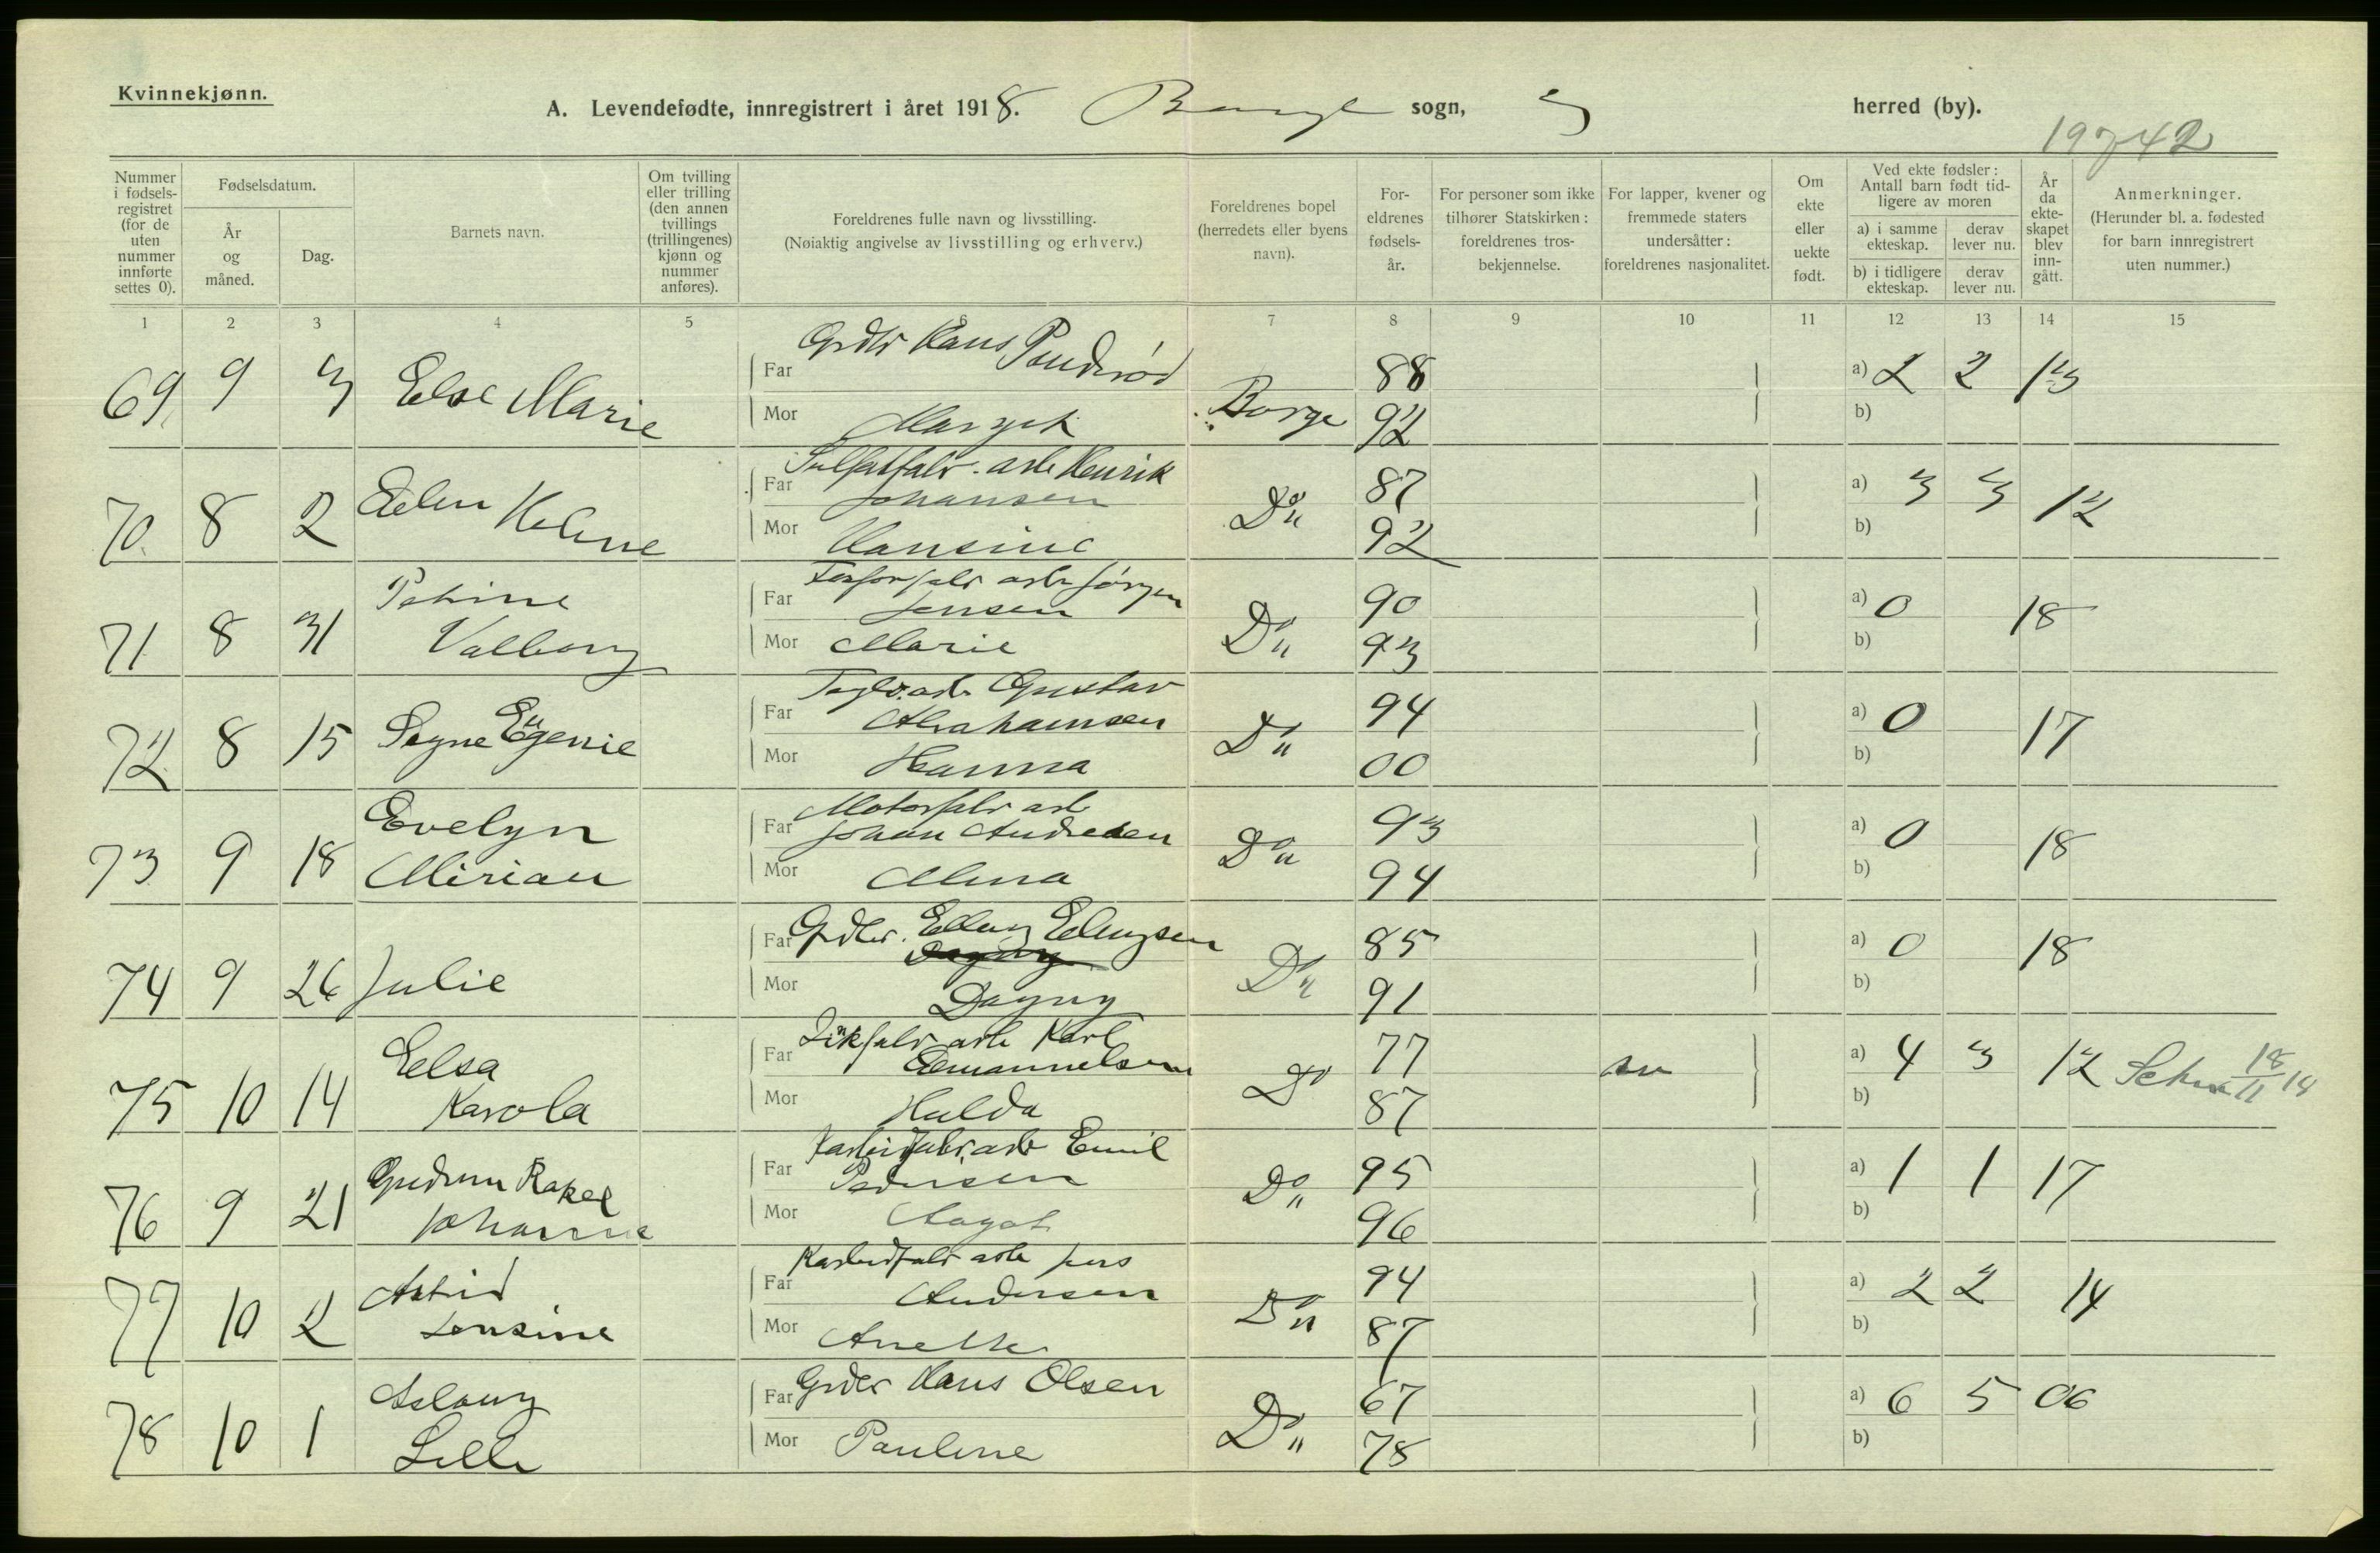 Kvinnekjønn.
A. Levendefødte, innregistrert i året 1918. Borge sogn, herred (by).
19742
Nummer i fødsels-registret (for de uten nummer innførte settes 0).
Fødselsdatum.
År og måned.
Dag.
Barnets navn.
Om tvilling eller trilling (den annen tvillings (trillingenes) kjønn og nummer anføres).
Foreldrenes fulle navn og livsstilling.
(Nøiaktig angivelse av livsstilling og erhverv.)
Foreldrenes bopel (herredets eller byens navn).
For-eldrenes fødsels-år.
For personer som ikke tilhører Statskirken: foreldrenes tros-bekjennelse.
For lapper, kvener og fremmede staters undersåtter: foreldrenes nasjonalitet.
Om ekte eller uekte født.
Ved ekte fødsler: Antall barn født tid-ligere av moren
a) i samme ekteskap.
derav lever nu.
b) i tidligere ekteskap.
derav lever nu.
År da ekte-skapet blev inn-gått.
Anmerkninger.
(Herunder bl. a. fødested for barn innregistrert uten nummer.)
1 2 3 4 5 6 7 8 9 10 11 12 13 14 15
69 9 3 Else Marie Far Grdbr Hans Pundsrød Borge 88 a) 2 2 13
Mor Margit 92 b)
70. 8 2 Eden Helene Far Sulfatfabr. arb Henrik Johansen Do 87 a) 3 3 12
Mor Hansine 92 b)
71 8 31 Petrine Valborg Far Fosforfabr arb Jørgen Jensen Do 90 a) 0 18
Mor Marie 93 b)
72 8 15 Signe Eugenie Far Teglv. arb Gustav Abrahamsen Do 94 a) 0 17
Mor Hanna 00 b)
73 9 18 Evelyn Mirian Far Motorfabr arb Johan Andresen Do 93 a) 0 18
Mor Mina 94 b)
74 9 26 Julie Far Grdbr. Elling Ellingsen Do 85 a) 0 18
Mor Dagny 91 b)
75 10 14 Elsa Karola Far Zinkfabr arb Karl Emanuelsen Do 77 sv a) 4 3 12 18/11 14
Mor Hulda 87 b)
76 9 21 Gudrun Rakel Johanne Far Karbidfabr. arb Emil Pedersen Do 95 a) 1 1 17
Mor Aagot 96 b)
77 10 2 Astrid Jensine Far Karbidfabr arb Jens Andersen Do 94 a) 2 2 14
Mor Anette 87 b)
78 10 1 Aslaug Lilli Far Grdbr Hans Olsen Do 67 a) 6 5 06
Mor Pauline 78 b)